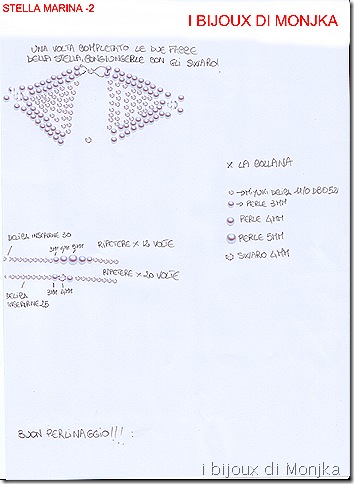 STELLA MARINA -2
I BIJOUX DI MONJKA
UNA VOLTA COMPLETATO LE DUE FACCE
DELLA STELLA, CONGIUNGERLE CON GLI SWARO!
X LA COLLANA
→ MIYUKI DELICA 11/0 DB052
→ PERLE 3MM
PERLE 4MM
PERLE 5MM
SWARO 4MM
DELICA INSERIRNE 30
3MM 4MM 5MM
RIPETERE X 18 VOLTE
RIPETERE X 20 VOLTE
DELICA
INSERIRNE 25
3MM 4MM
BUON PERLINAGGIO!!!
i bijoux di Monjka